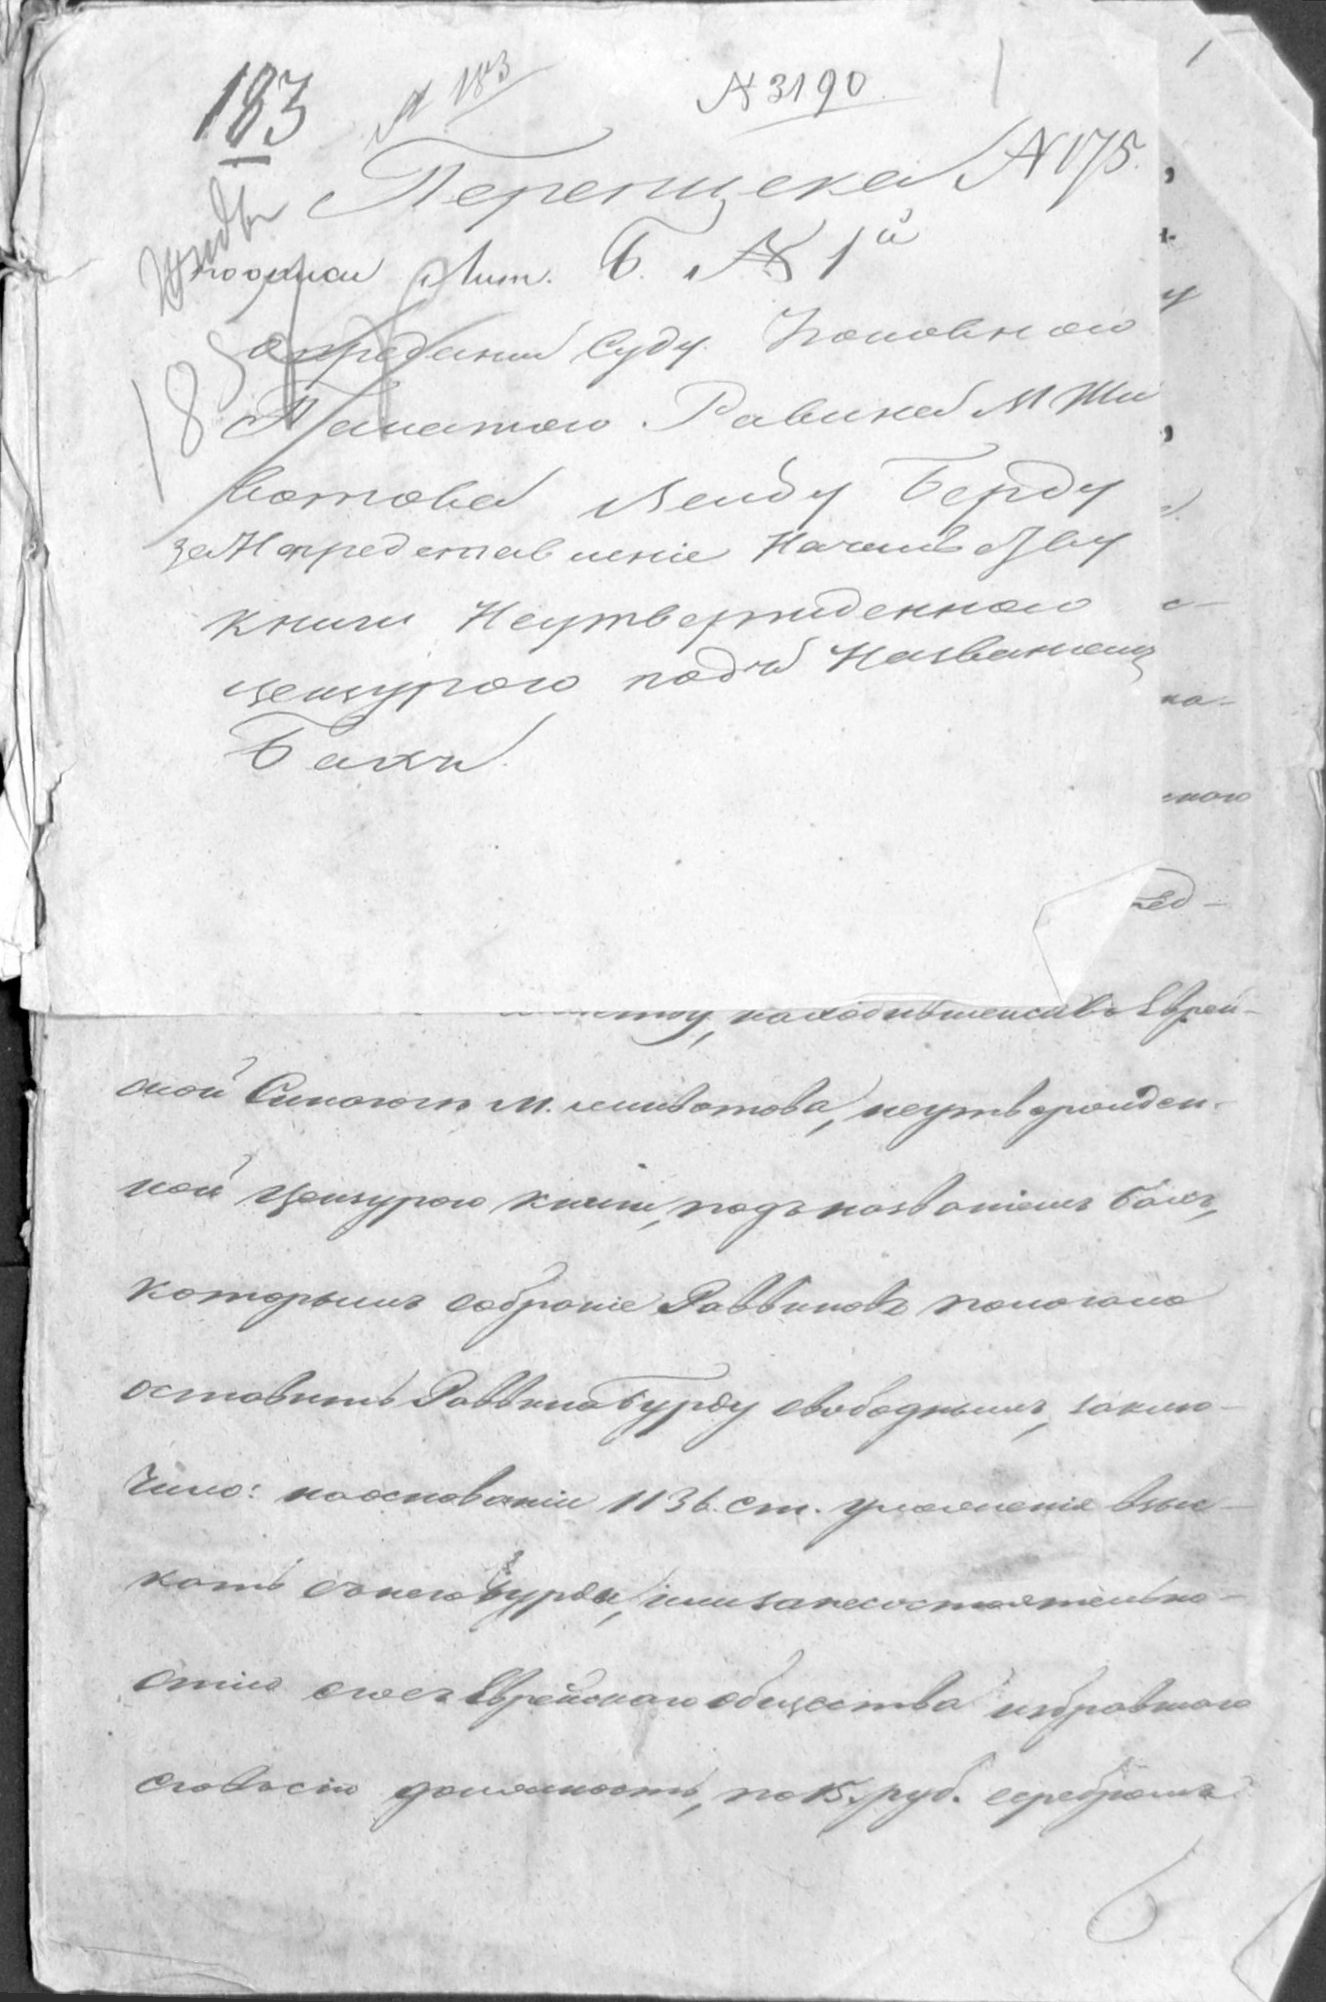 183 № 183 № 3190
Переписка № 175.
Жиды
по описи Лит. Б. № 1й
18
о предании Суду Уголовною
Палатою Равина М Жи
вотова Лейбу Берду
за Непредставление Началству
книги Неутвержденною
цензурою подъ Названиемъ
Бахъ.
находившейся въ Еврей-
ской Синагоге м. Животова, неутвержден-
ной цензурою книги, подъ названіемъ Бахъ,
которымъ собраніе Раввиновъ полагало
оставить Раввина Бурду свободнымъ, заклю-
чило: на основаніи 1136. ст. уложенія взыс-
кать съ него Бурды, или за несостоятельно-
стію его съ Еврейскаго общества избравшаго
его въ сію должность, по 15. руб. серебромъ